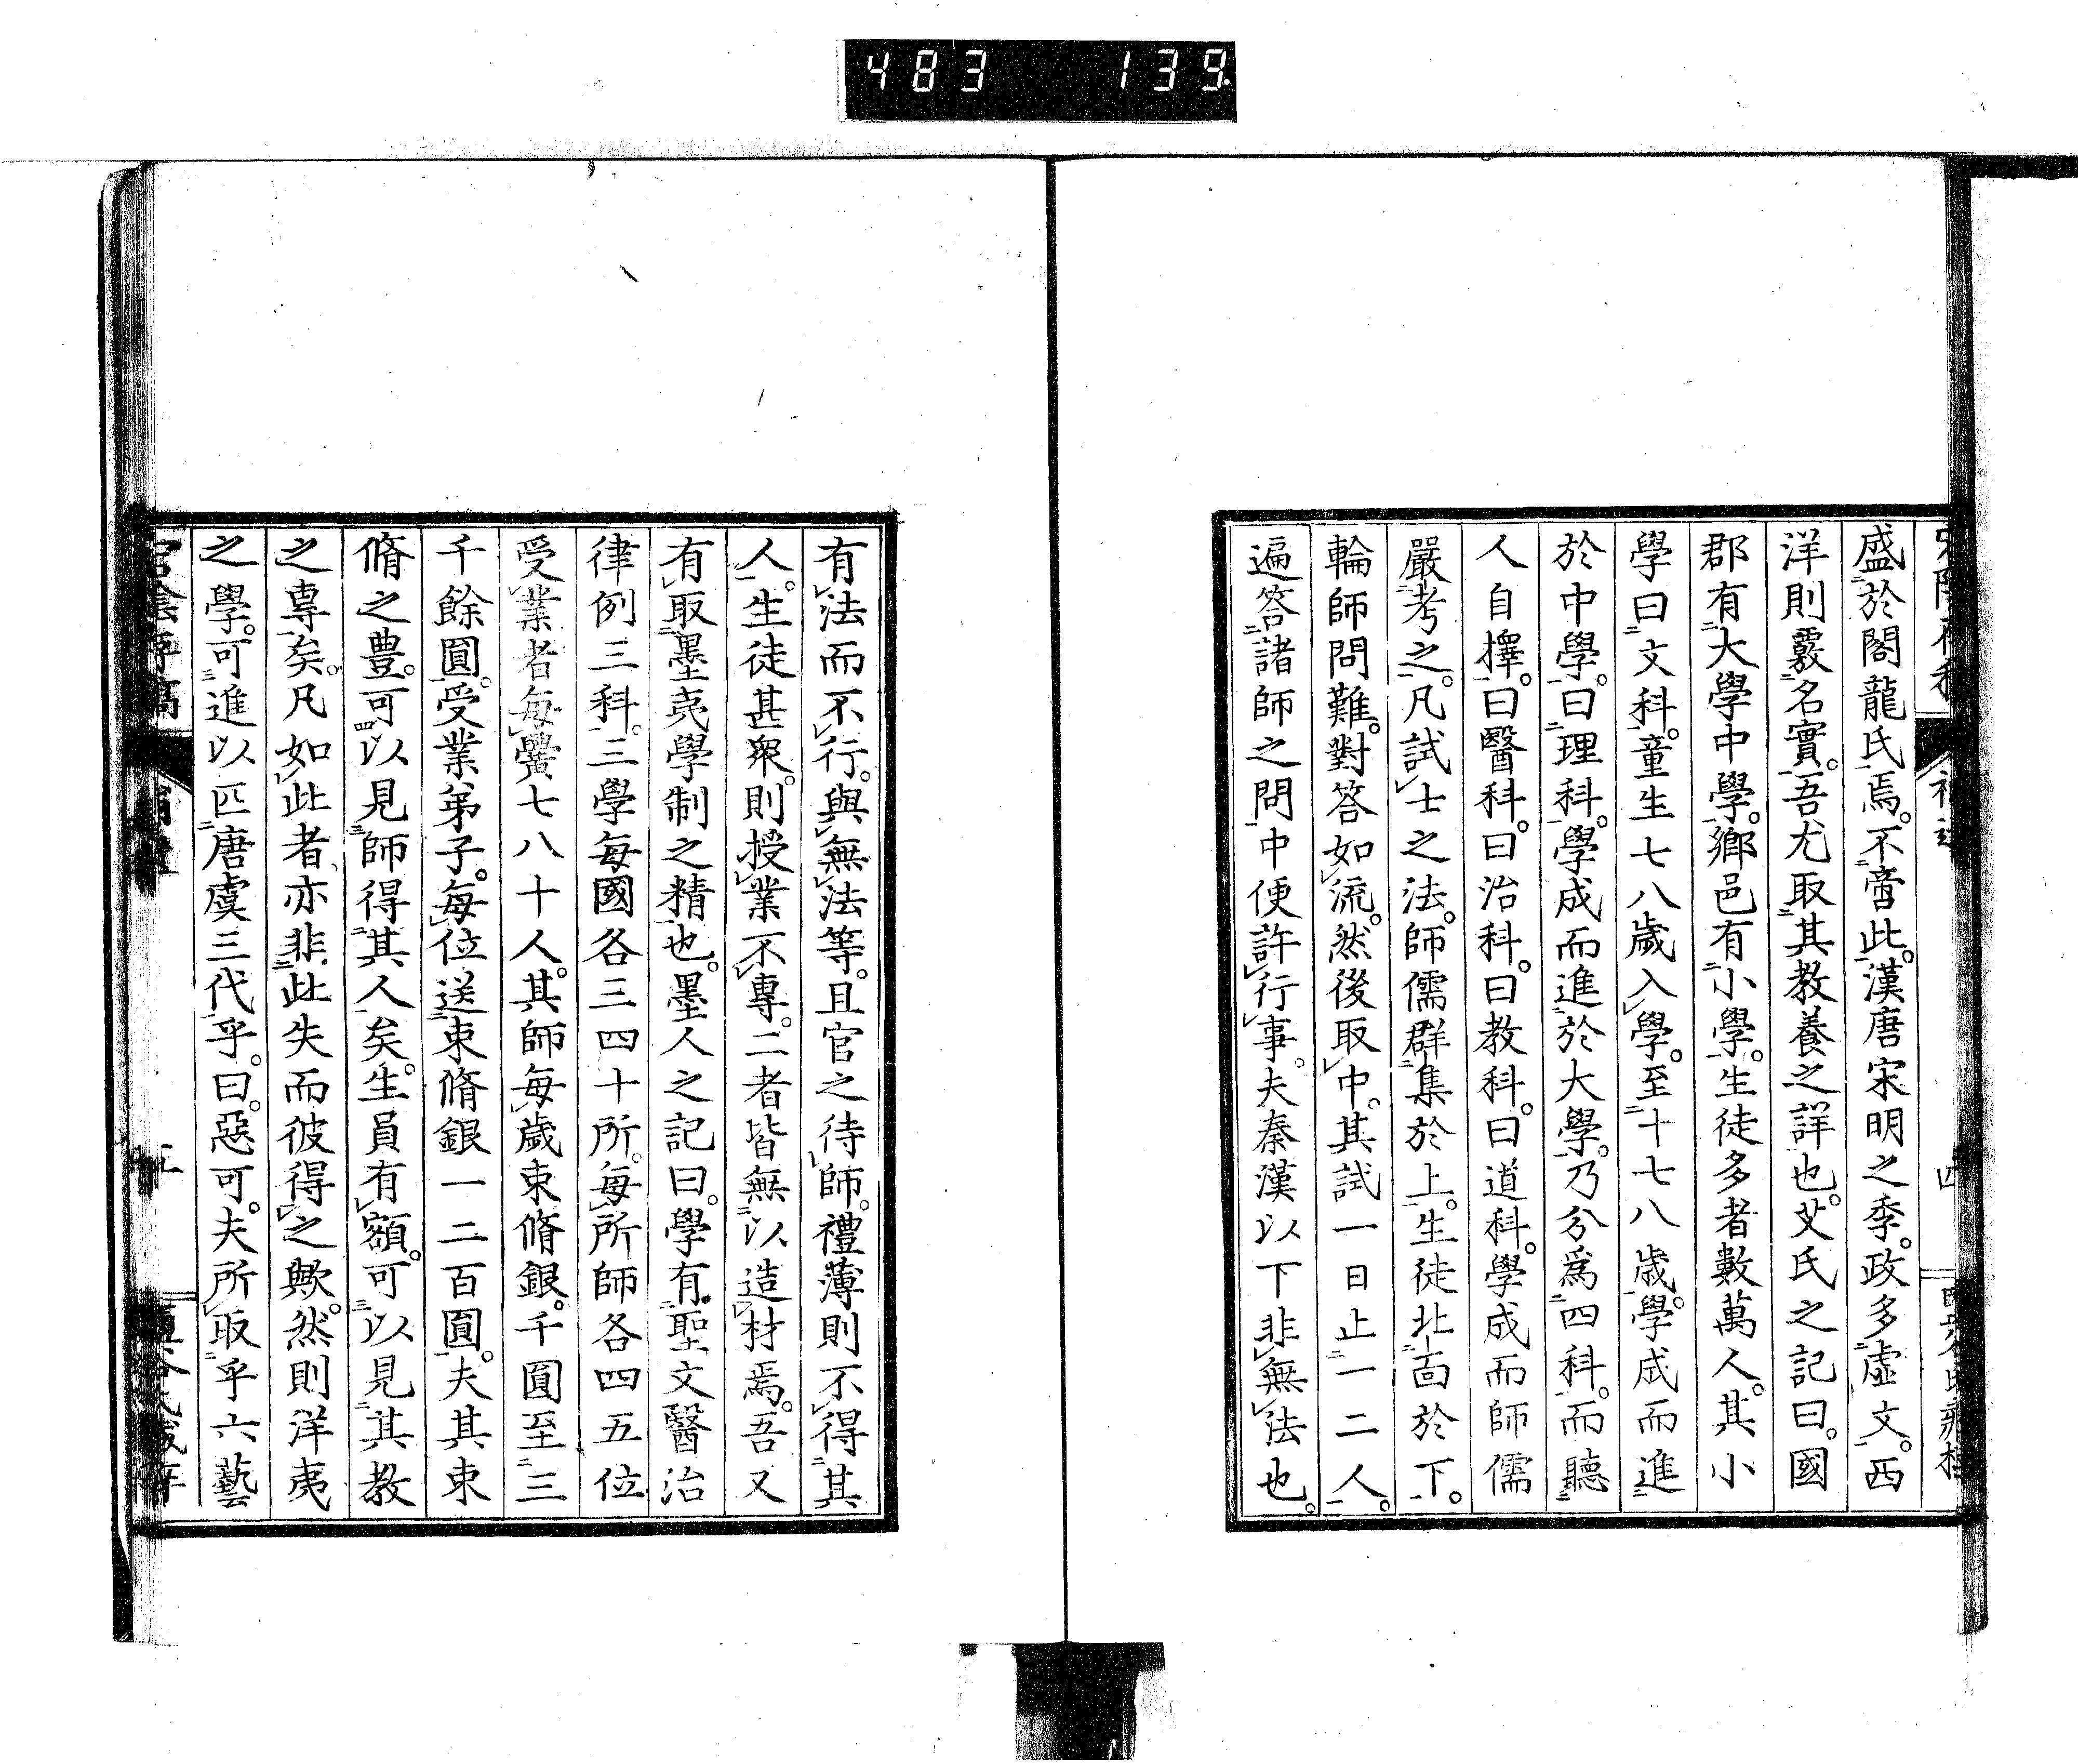 483 139
盛於閣龍氏焉。不啻此。漢唐宋明之季。政多虛文。西
洋則覈名實。吾尤取其教養之詳也。艾氏之記曰。國
郡有大學中學。鄉邑有小學。生徒多者數萬人。其小
學曰文科。童生七八歲入學。至十七八歲。學成而進
於中學。曰理科。學成而進於大學。乃分爲四科。而聽
人自擇。曰醫科。曰治科。曰教科。曰道科。學成而師儒
嚴考之。凡試士之法。師儒群集於上。生徒北面於下。
輪師問難。對答如流。然後取中。其試一日止一二人。
遍答諸師之問。中便許行事。夫秦漢以下。非無法也。
有法而不行。與無法等。且官之待師。禮薄則不得其
人。生徒甚衆。則授業不專。二者皆無以造材焉。吾又
有取墨夷學制之精也。墨人之記曰。學有聖文醫治
律例三科。三學每國各三四十所。每所師各四五位
受業者每黌七八十人。其師每歲束脩銀。千圓至三
千餘圓。受業弟子。每位送束脩銀一二百圓。夫其束
脩之豊。可以見師得其人矣。生員有額。可以見其教
之專矣。凡如此者亦非此失而彼得之歟。然則洋夷
之學。可進以匹唐虞三代乎。曰。惡可。夫所取乎六藝